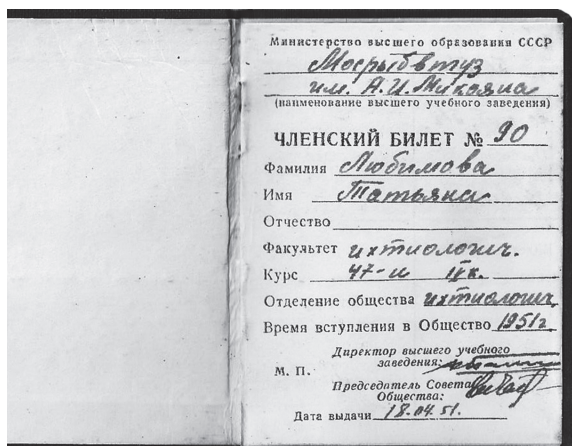 Министерство высшего образования СССР
Мосрыбвтуз
им. А. И. Микояна
(наименование высшего учебного заведения)
ЧЛЕНСКИЙ БИЛЕТ № 90
Фамилия Любимова
Имя Татьяна
Отчество
Факультет ихтиологич.
Курс 47-и IVк.
Отделение общества ихтиологич.
Время вступления в Общество 1951г
Директор высшего учебного
заведения:
М. П.
Председатель Совета
Общества:
Дата выдачи 18.04.51.